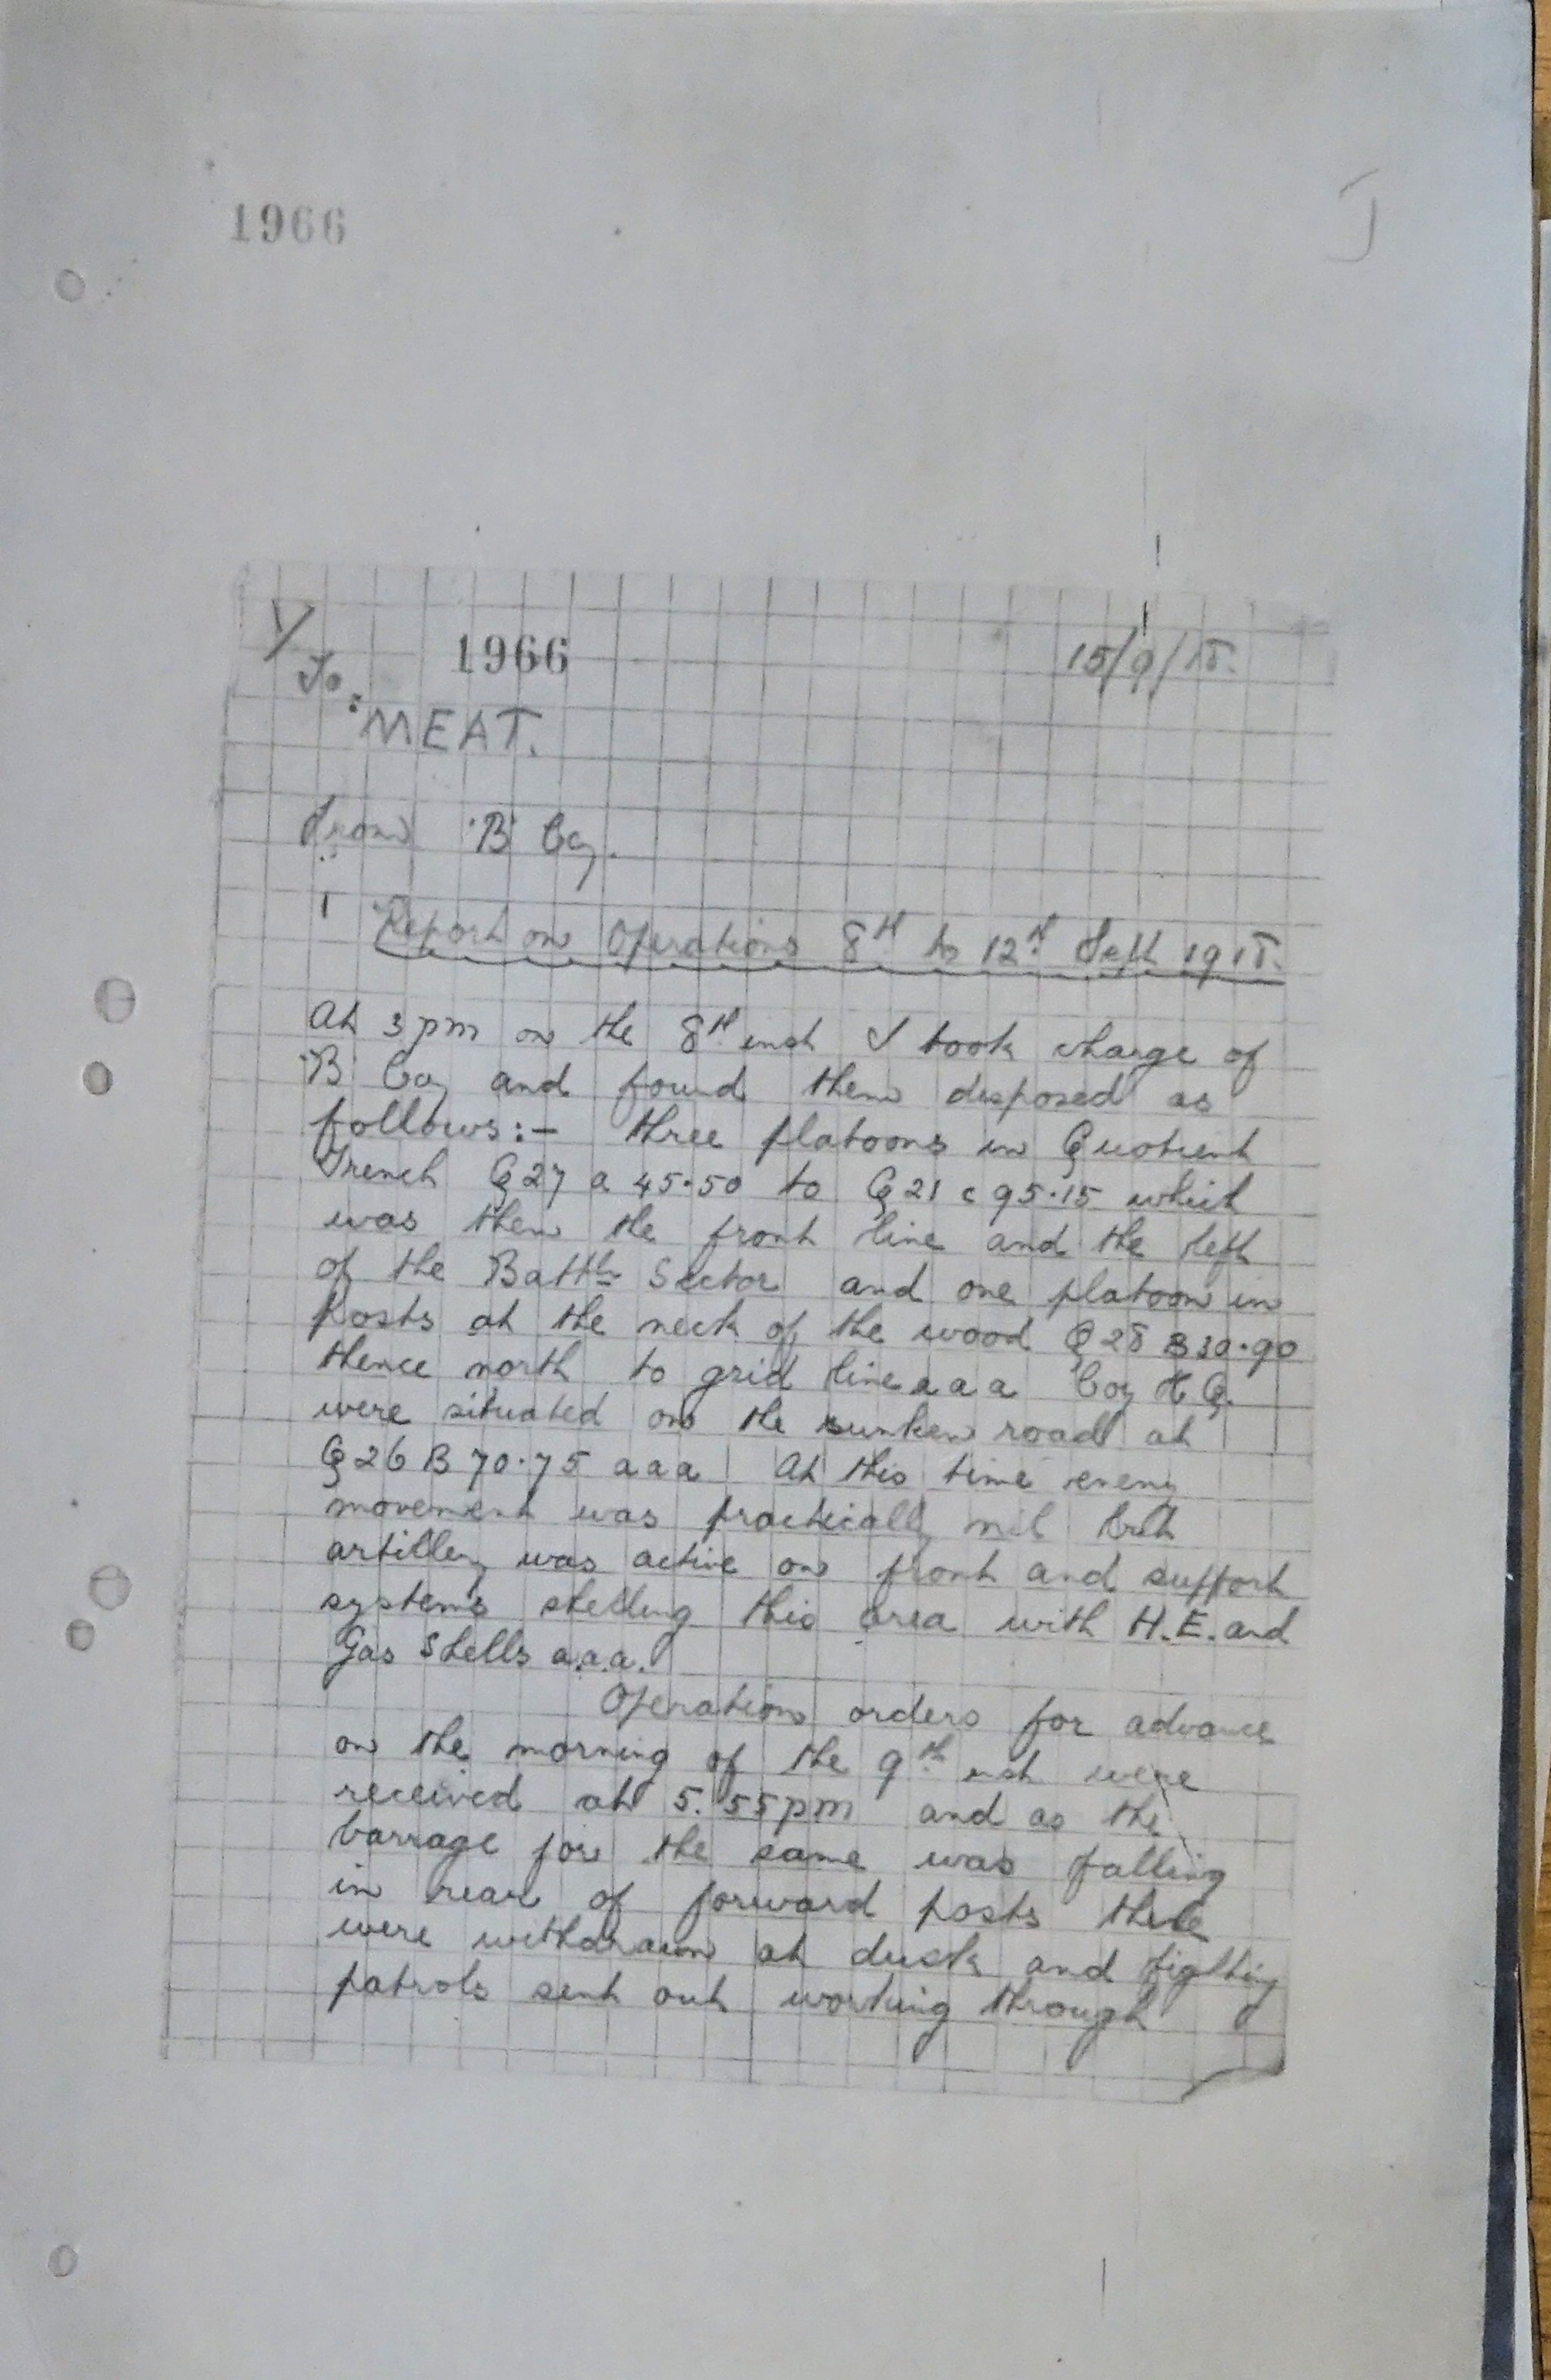 1966
J
1/
1966
15/9/18.
To:
MEAT.
From 'B' Coy.
1 Report on Operations 8th to 12th Sept 1918.
At 3pm on the 8th inst I took charge of
'B' Coy and found them disposed as
follows:- three platoons in Quotient
Trench Q27 a 45.50 to Q21 c 95.15 which
was then the front line and the left
of the Battle Sector and one platoon in
Posts at the neck of the wood Q28 B30.90
thence north to grid line aaa Coy HQ.
were situated on the sunken road at
Q26 B 70.75 aaa At this time enemy
movement was practically nil but
artillery was active on front and support
systems shelling this area with H.E. and
Gas Shells a.a.a.
Operation orders for advance
on the morning of the 9th inst were
received at 5.55pm and as the
barrage for the same was falling
in rear of forward posts these
were withdrawn at dusk and fighting
patrols sent out working through